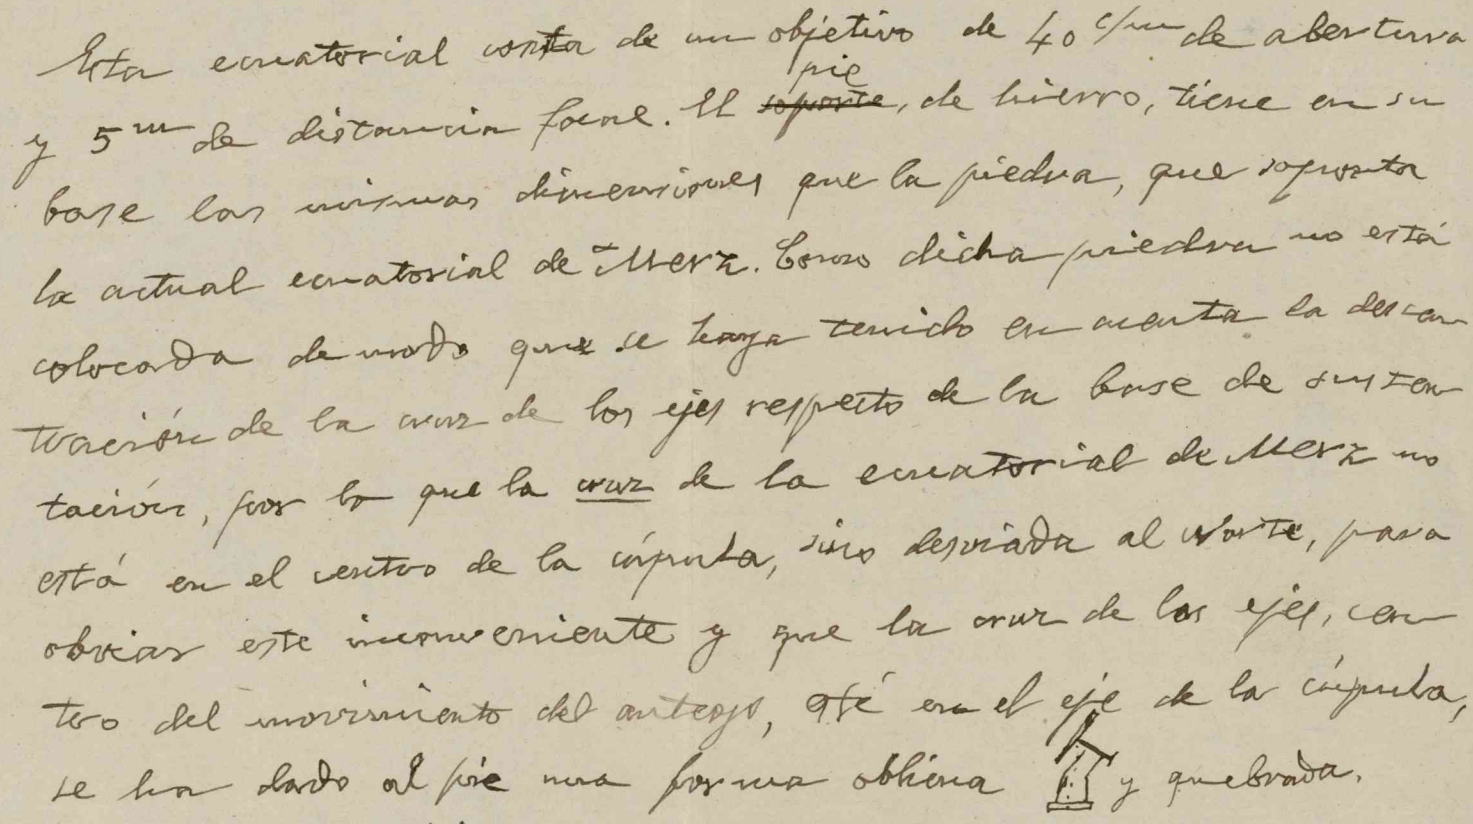 Esta ecuatorial consta de un objetivo de 40 c/m de abertura
y 5 m de distancia focal. El soporte pie, de hierro, tiene en su
base las mismas dimensiones que la piedra, que soporta
la actual ecuatorial de Merz. Como dicha piedra no está
colocada de modo que se haya tenido en cuenta la descen
tración de la cruz de los ejes respecto de la base de susten
tación, por lo que la cruz de la ecuatorial de Merz no
está en el centro de la cúpula, sino desviada al Norte, para
obviar este inconveniente y que la cruz de los ejes, cen
tro del movimiento del anteojo, esté en el eje de la cúpula,
se ha dado al pie una forma oblicua y quebrada.